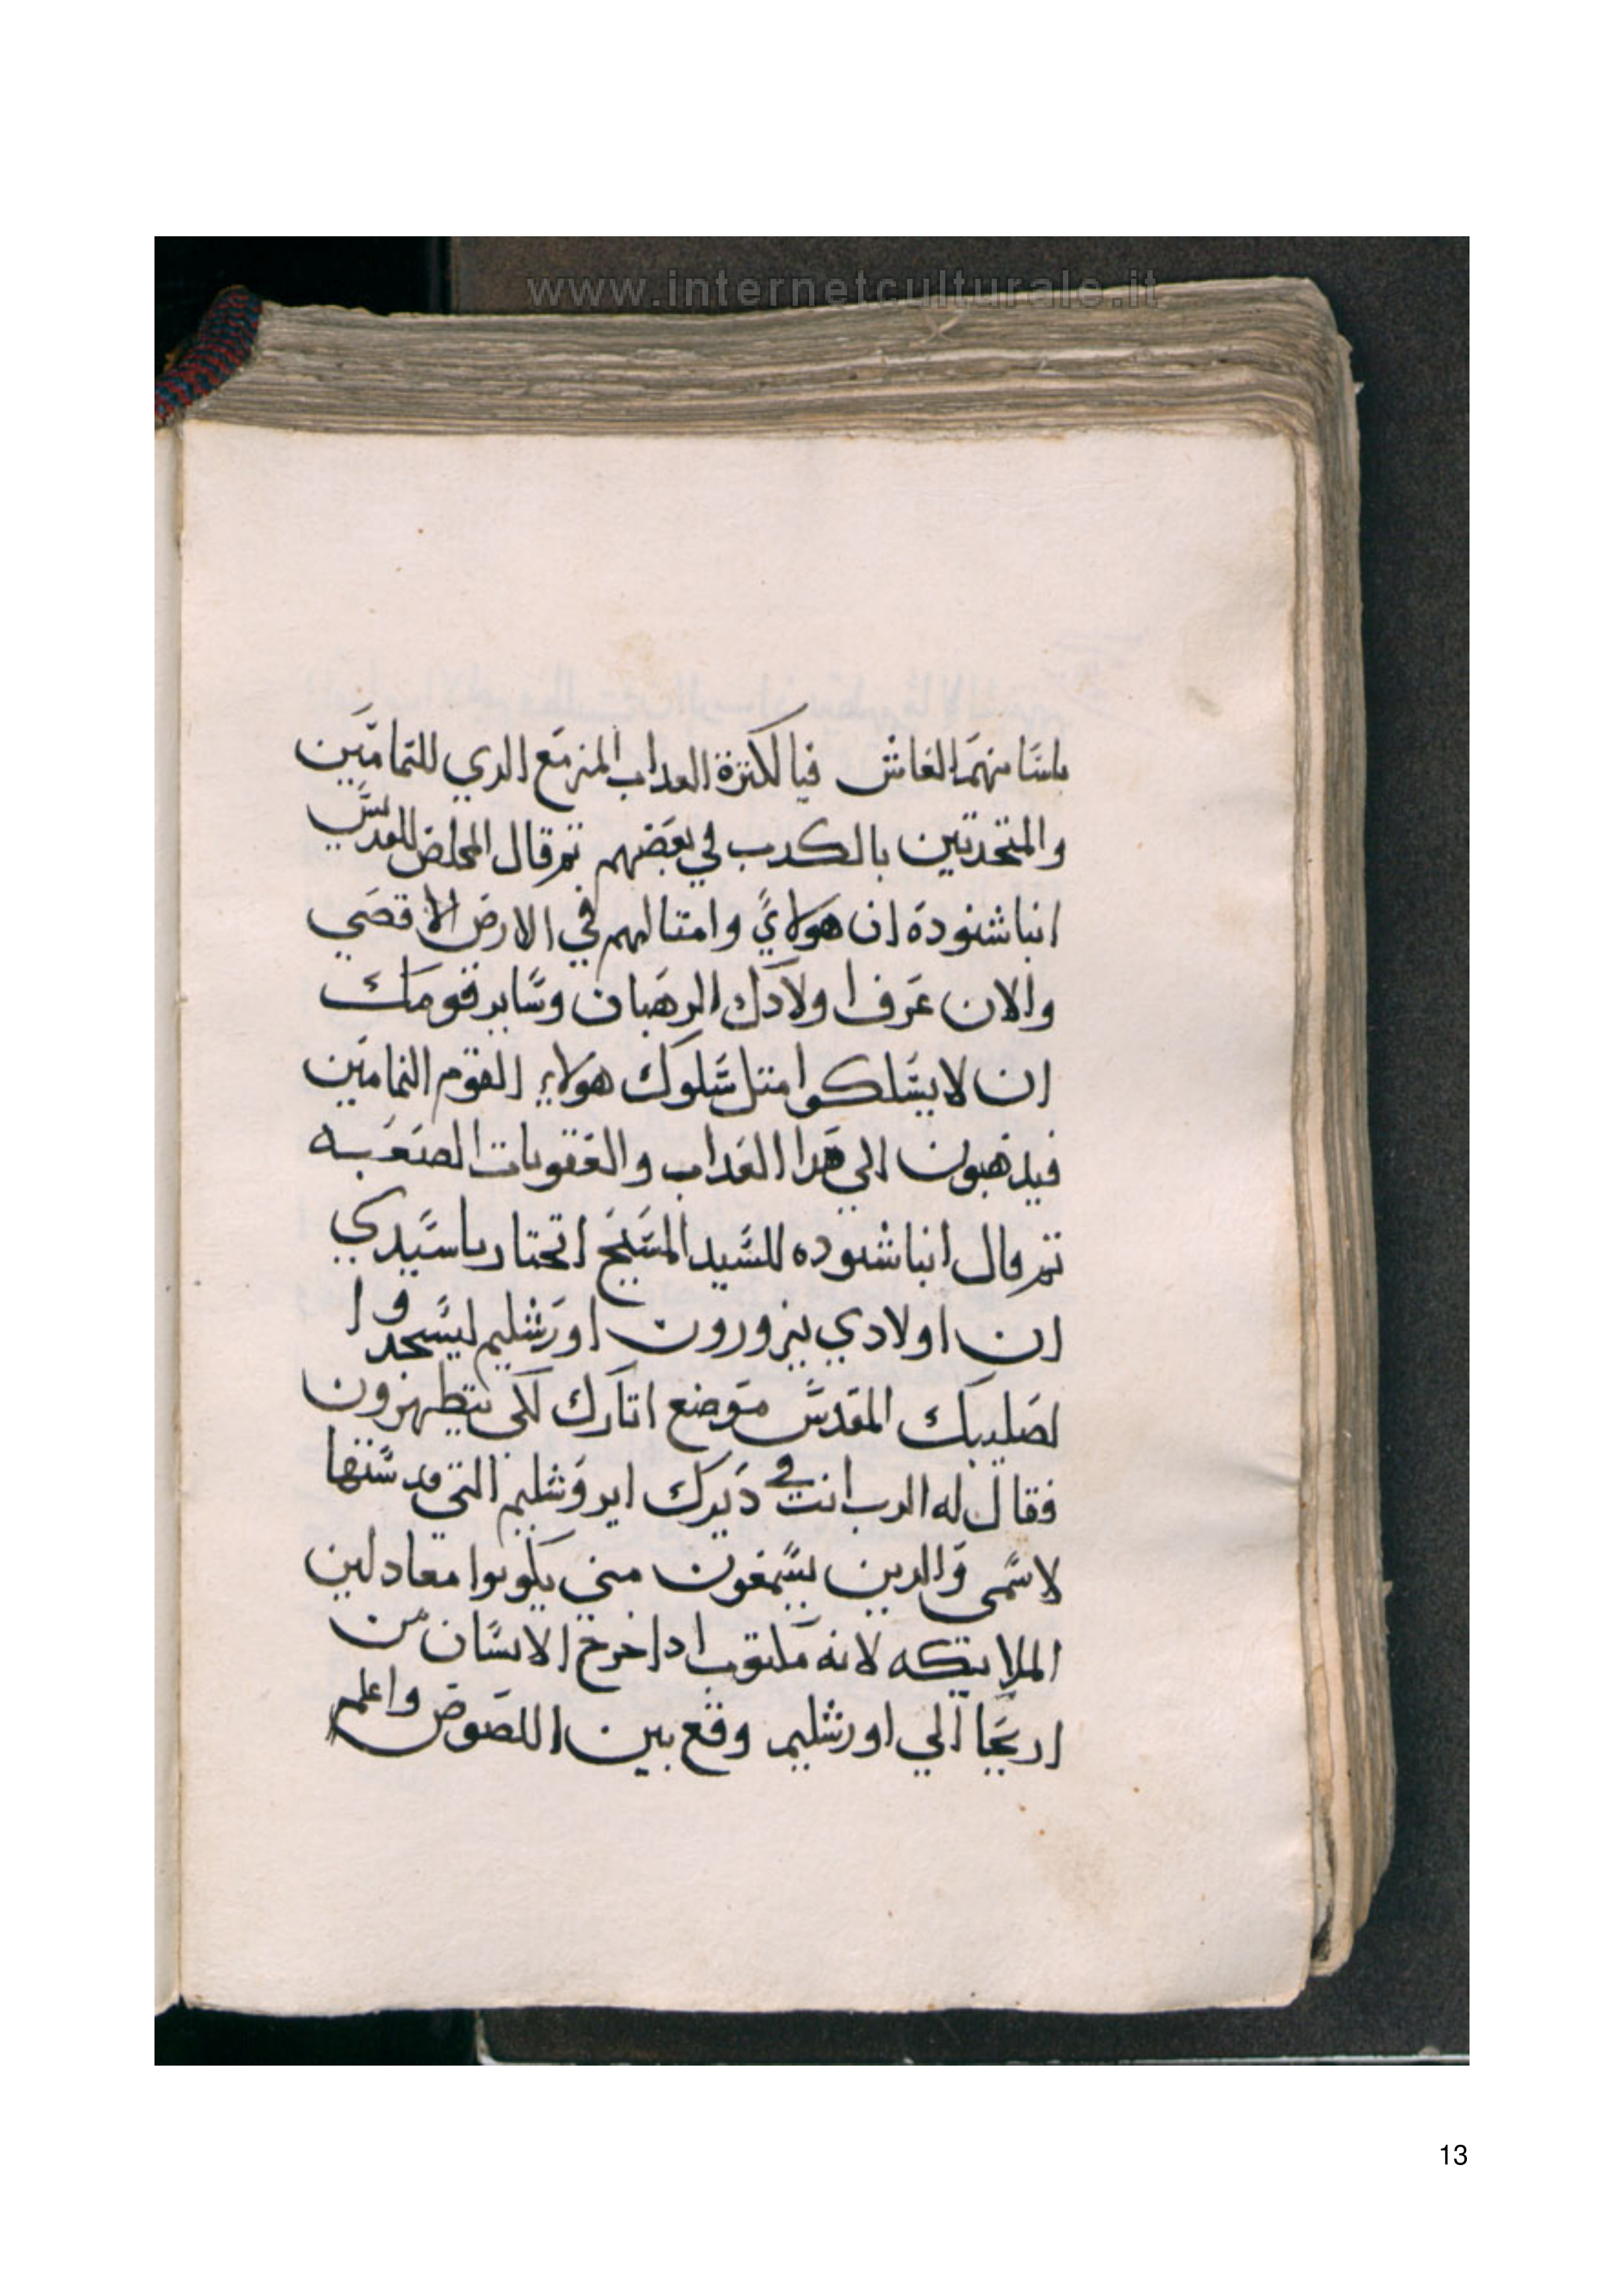 www.internetculturale.it
باسنا منهم الغاش فيا لكترة العداب المزمع الدي للنمامين
والمتحدتين بالكدب في بعضهم تم قال المخلص للقديس
انبا شنودة ان هولاي وامتالهم في الارض الاقصي
والان عرف اولادك الرهبان وساير قومك
ان لا يسلكوا متل سلوك هولاء القوم النمامين
فيذهبون الي هدا العداب والعقوبات الصعبه
تم قال انبا شنوده للسيد المسيح اتختار يا سيدي
ان اولادي يزورون اورشليم ليسجدوا
لصليبك المقدس موضع اتارك لكي يتطهرون
فقال له الرب انت في ديرك ايروشليم التي قدستها
لاسمى والدين يسمعون مني يكونوا معادلين
الملايكه لانه مكتوب ادا خرج الانسان من
اريحا الي اورشليم وقع بين اللصوص واعلم
13